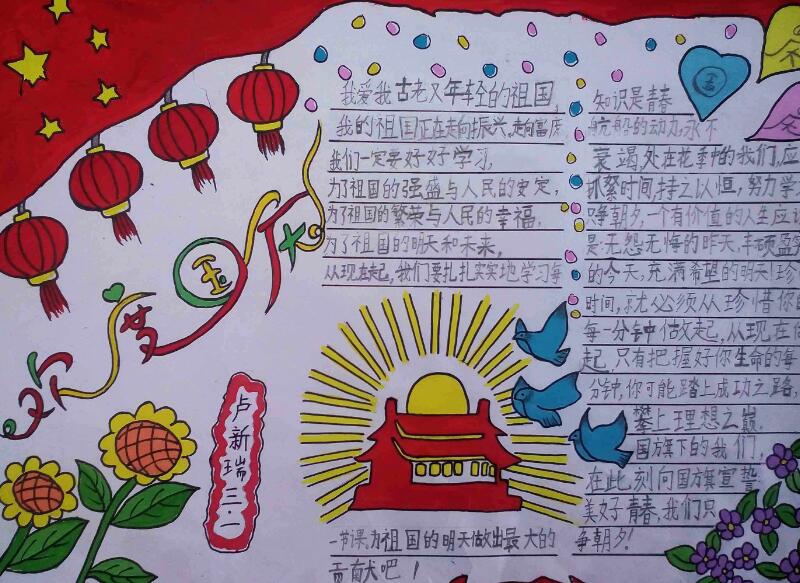 欢度国庆
卢新瑞三.一
我爱我古老又年轻的祖国,
我的祖国正在走向振兴,走向富庶
我们一定要好好学习,
为了祖国的强盛与人民的安定,
为了祖国的繁荣与人民的幸福,
为了祖国的明天和未来,
从现在起,我们要扎扎实实地学习每
一节课,为祖国的明天做出最大的
贡献吧!
知识是青春
航船的动力,永不
衰竭,处在花季中的我们,应
抓紧时间,持之以恒,努力学
只争朝夕,一个有价值的人生应
是:无怨无悔的昨天,丰硕盈实
的今天,充满希望的明天!珍
时间,就必须从珍惜你的
每一分钟做起,从现在做
起,只有把握好你生命的每
分钟,你可能踏上成功之路,
攀上理想之巅.
国旗下的我们,
在此刻向国旗宣誓
美好青春,我们只
争朝夕!